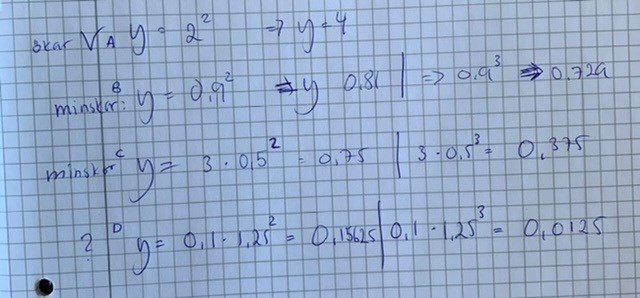 ökar V A y = 2² ⇒ y = 4
minskar: B y = 0,9² ⇒ y 0,81 | ⇒ 0,9³ ⇒ 0,729
minskar C y = 3 · 0,5² = 0,75 | 3 · 0,5³ = 0,375
? D y = 0,1 · 1,25² = 0,15625 | 0,1 · 1,25³ = 0,0125